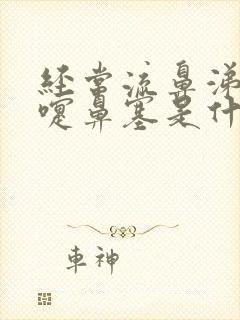 经常流鼻涕
嚏鼻塞是什
車神